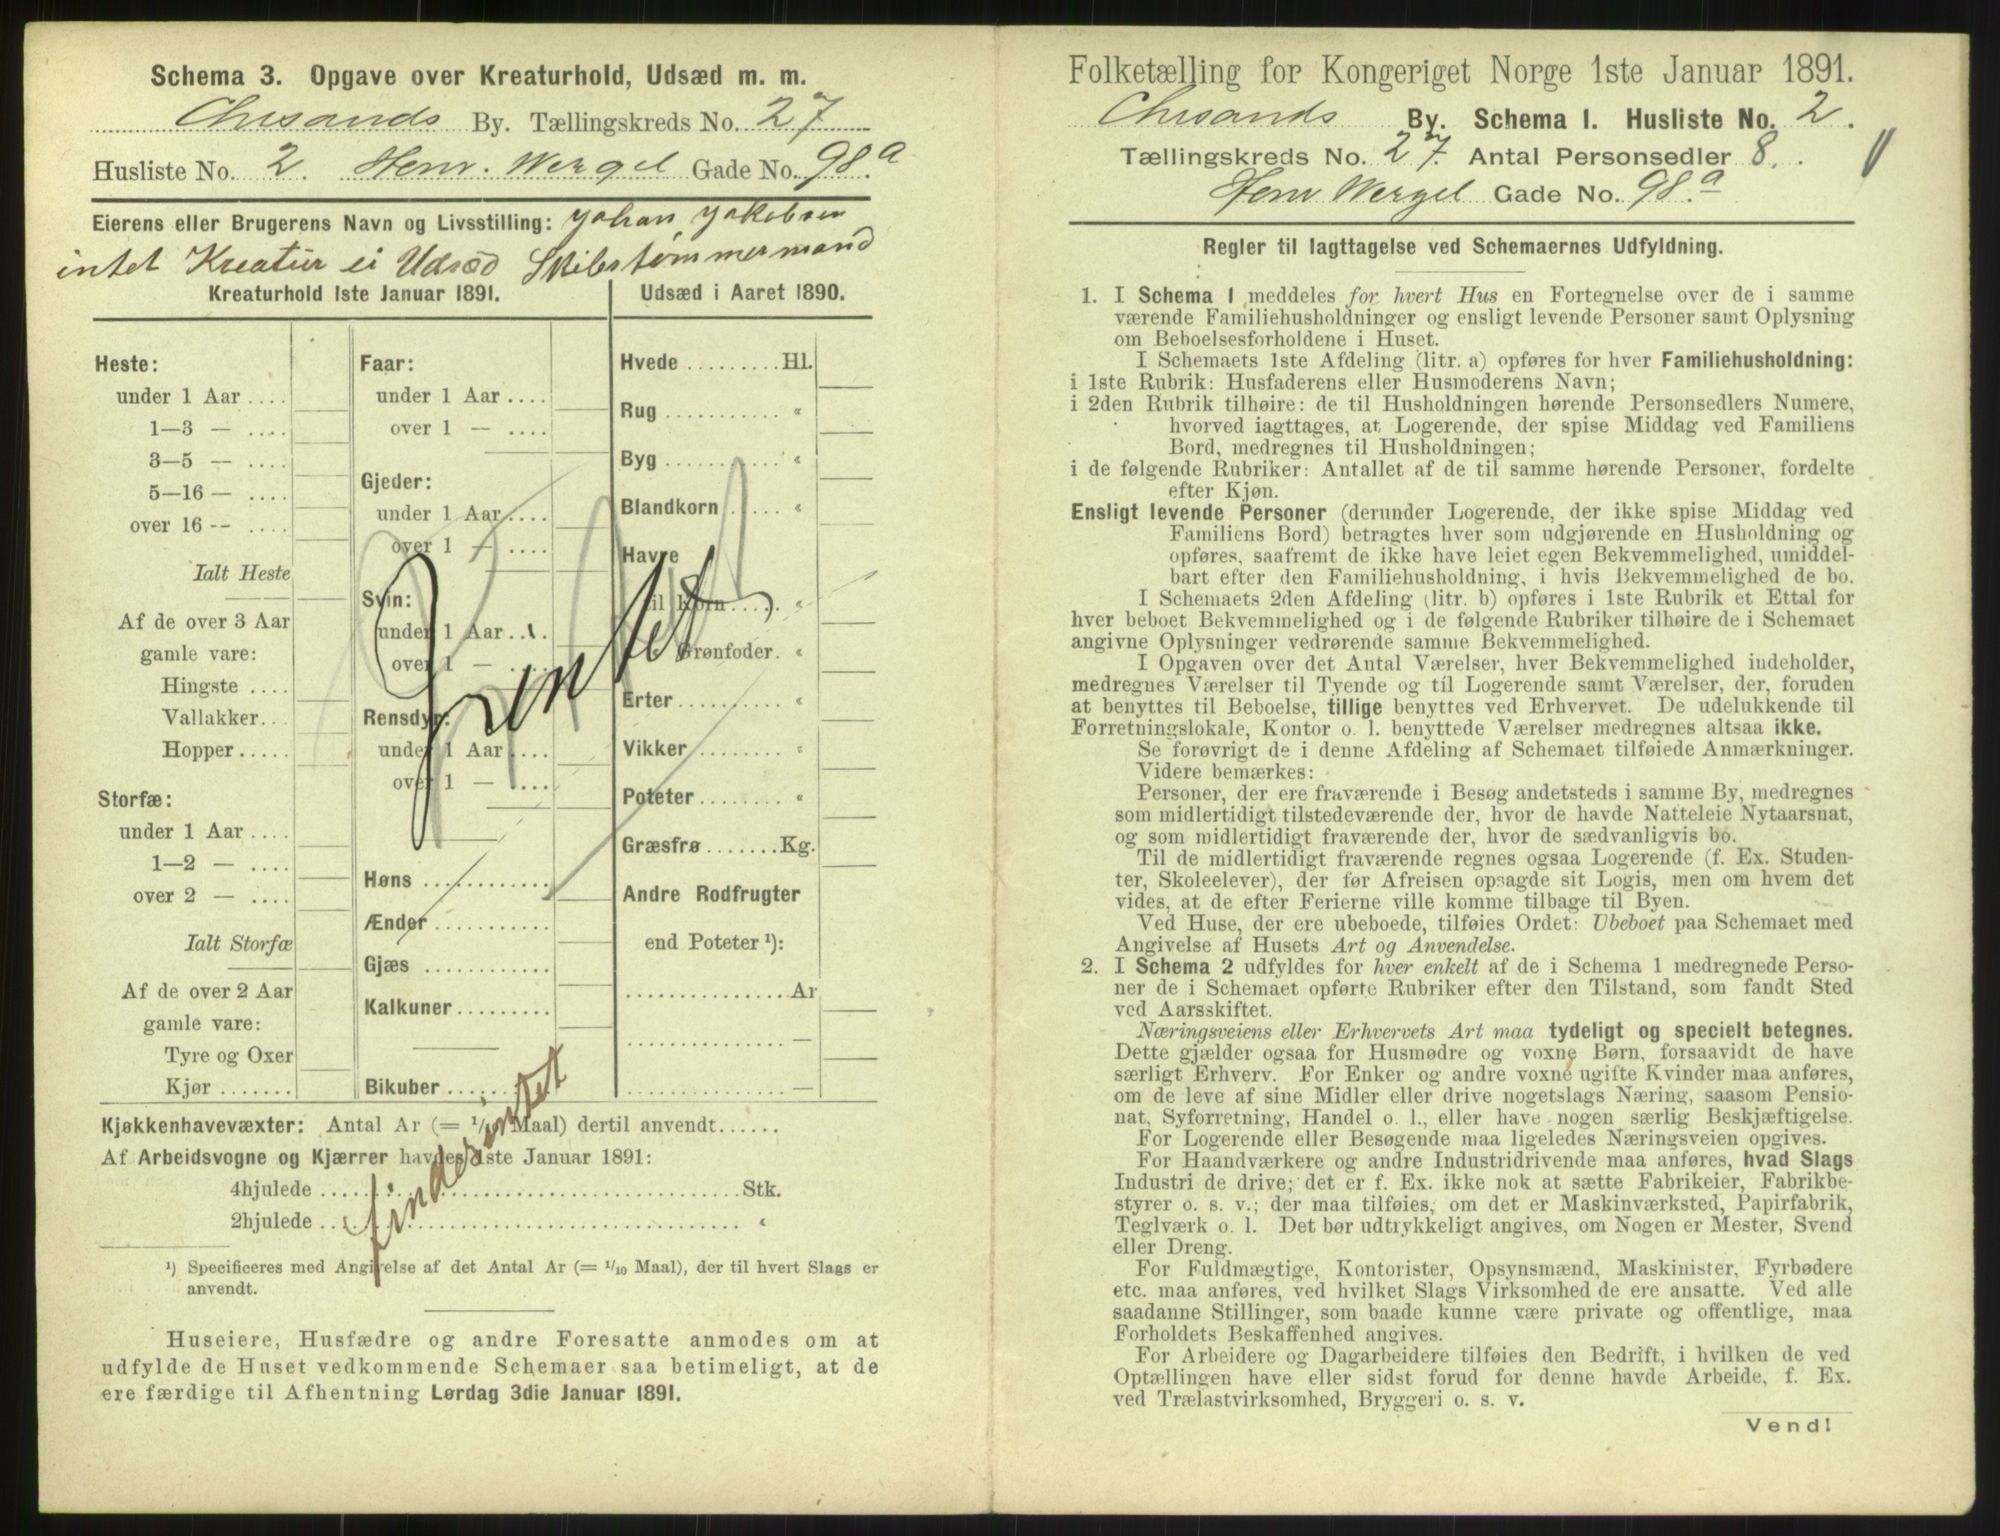 Schema 3. Opgave over Kreaturhold, Udsæd m. m.
Chrsands By. Tællingskreds No. 27
Husliste No. 2. Henr. Wergel Gade No. 98.a
Eierens eller Brugerens Navn og Livsstilling: Johan Jakobsen
intet Kreatur ei Udsæd Skibstømmermand
Kreaturhold 1ste Januar 1891.
Heste:
under 1 Aar ....
1—3 — ....
3—5 — ....
5—16 — ....
over 16 -- ....
Ialt Heste
Af de over 3 Aar
gamle vare:
Hingste ....
Vallakker...
Hopper.....
Storfæ:
under 1 Aar ....
1—2 — ....
over 2 — ....
Ialt Storfæ
Af de over 2 Aar
gamle vare:
Tyre og Oxer
Kjør .......
Faar:
under 1 Aar ....
over 1 — ....
Gjeder:
under 1 Aar ....
over 1 — ....
Svin:
under 1 Aar ....
over 1 — ....
Rensdyr:
under 1 Aar ....
over 1 — ....
Høns ............
Ænder ...........
Gjæs ............
Kalkuner .........
Bikuber ..........
Udsæd i Aaret 1890.
Hvede .........Hl.
Rug ........... “
Byg ........... “
Blandkorn ...... “
Havre
til Korn ...... “
Grønfoder. “
Erter .......... “
Vikker ......... “
Poteter ........ “
Græsfrø .......Kg.
Andre Rodfrugter
end Poteter ¹):
...............Ar
............... —
............... —
intet
findes intet
Kjøkkenhavevæxter: Antal Ar (= 1/ Maal) dertil anvendt......
Af Arbeidsvogne og Kjærrer havdes 1ste Januar 1891:
4hjulede ........................................Stk.
2hjulede ........................................ “
¹) Specificeres med Angivelse af det Antal Ar (= 1/10 Maal), der til hvert Slags er
anvendt.
Huseiere, Husfædre og andre Foresatte anmodes om at
udfylde de Huset vedkommende Schemaer saa betimeligt, at de
ere færdige til Afhentning Lørdag 3die Januar 1891.
Folketælling for Kongeriget Norge 1ste Januar 1891.
Chrsands By. Schema I. Husliste No. 2.
Tællingskreds No. 27. Antal Personsedler 8.
Henr Wergel Gade No. 98.a
Regler til Iagttagelse ved Schemaernes Udfyldning.
1. I Schema 1 meddeles for hvert Hus en Fortegnelse over de i samme
værende Familiehusholdninger og ensligt levende Personer samt Oplysning
om Beboelsesforholdene i Huset.
I Schemaets 1ste Afdeling (litr. a) opføres for hver Familiehusholdning:
i 1ste Rubrik: Husfaderens eller Husmoderens Navn;
i 2den Rubrik tilhøire: de til Husholdningen hørende Personsedlers Numere,
hvorved iagttages, at Logerende, der spise Middag ved Familiens
Bord, medregnes til Husholdningen;
i de følgende Rubriker: Antallet af de til samme hørende Personer, fordelte
efter Kjøn.
Ensligt levende Personer (derunder Logerende, der ikke spise Middag ved
Familiens Bord) betragtes hver som udgjørende en Husholdning og
opføres, saafremt de ikke have leiet egen Bekvemmelighed, umiddel-
bart efter den Familiehusholdning, i hvis Bekvemmelighed de bo.
I Schemaets 2den Afdeling (litr. b) opføres i 1ste Rubrik et Ettal for
hver beboet Bekvemmelighed og i de følgende Rubriker tilhøire de i Schemaet
angivne Oplysninger vedrørende samme Bekvemmelighed.
I Opgaven over det Antal Værelser, hver Bekvemmelighed indeholder,
medregnes Værelser til Tyende og til Logerende samt Værelser, der, foruden
at benyttes til Beboelse, tillige benyttes ved Erhvervet. De udelukkende til
Forretningslokale, Kontor o. l. benyttede Værelser medregnes altsaa ikke.
Se forøvrigt de i denne Afdeling af Schemaet tilføiede Anmærkninger.
Videre bemærkes:
Personer, der ere fraværende i Besøg andetsteds i samme By, medregnes
som midlertidigt tilstedeværende der, hvor de havde Natteleie Nytaarsnat,
og som midlertidigt fraværende der, hvor de sædvanligvis bo.
Til de midlertidigt fraværende regnes ogsaa Logerende (f. Ex. Studen-
ter, Skoleelever), der før Afreisen opsagde sit Logis, men om hvem det
vides, at de efter Ferierne ville komme tilbage til Byen.
Ved Huse, der ere ubeboede, tilføies Ordet: Ubeboet paa Schemaet med
Angivelse af Husets Art og Anvendelse.
2. I Schema 2 udfyldes for hver enkelt af de i Schema 1 medregnede Perso-
ner de i Schemaet opførte Rubriker efter den Tilstand, som fandt Sted
ved Aarsskiftet.
Næringsveiens eller Erhvervets Art maa tydeligt og specielt betegnes.
Dette gjælder ogsaa for Husmødre og voxne Børn, forsaavidt de have
særligt Erhverv. For Enker og andre voxne ugifte Kvinder maa anføres,
om de leve af sine Midler eller drive nogetslags Næring, saasom Pensio-
nat, Syforretning, Handel o. l., eller have nogen særlig Beskjæftigelse.
For Logerende eller Besøgende maa ligeledes Næringsveien opgives.
For Haandværkere og andre Industridrivende maa anføres, hvad Slags
Industri de drive; det er f. Ex. ikke nok at sætte Fabrikeier, Fabrikbe-
styrer o. s. v.; der maa tilføies, om det er Maskinværksted, Papirfabrik,
Teglværk o. l. Det bør udtrykkeligt angives, om Nogen er Mester, Svend
eller Dreng.
For Fuldmægtige, Kontorister, Opsynsmænd, Maskinister, Fyrbødere
etc. maa anføres, ved hvilket Slags Virksomhed de ere ansatte. Ved alle
saadanne Stillinger, som baade kunne være private og offentlige, maa
Forholdets Beskaffenhed angives.
For Arbeidere og Dagarbeidere tilføies den Bedrift, i hvilken de ved
Optællingen have eller sidst forud for denne havde Arbeide, f. Ex.
ved Trælastvirksomhed, Bryggeri o. s. v.
Vend!